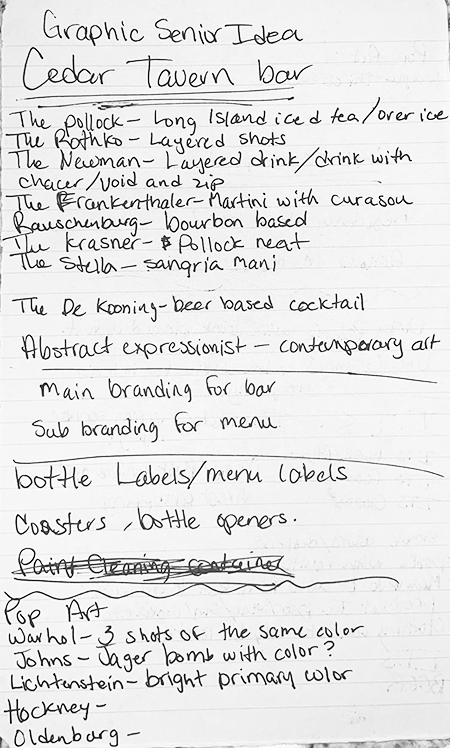 Graphic Senior Idea
Cedar Tavern bar
The pollock – Long Island iced tea/over ice
The Rothko – Layered shots
The Newman – Layered drink/drink with
chacer/void and zip
The Frankenthaler – Martini with curasou
Rauschenburg – bourbon based
The Krasner – Pollock neat
The Stella – sangria mani
The De Kooning – beer based cocktail
Abstract expressionist – contemporary art
Main branding for bar
Sub branding for menu
bottle Labels/menu labels
Coasters, bottle openers.
Paint Cleaning container
Pop Art
Warhol – 3 shots of the same color
Johns – Jager bomb with color?
Lichtenstein – bright primary color
Hockney –
Oldenburg –